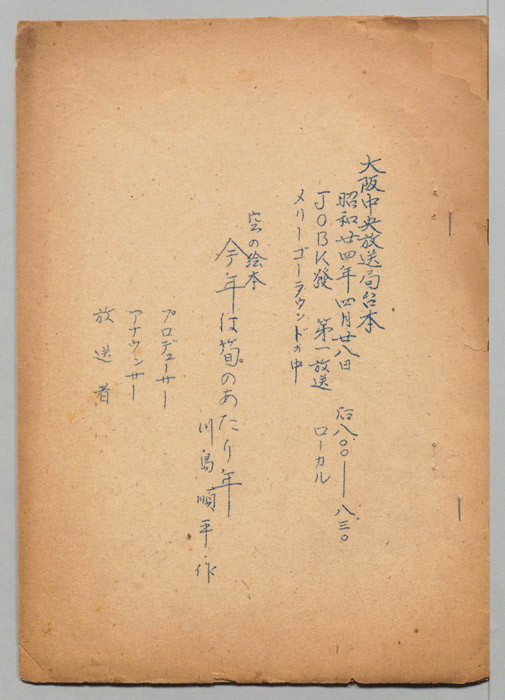 大阪中央放送局台本
昭和廿四年四月廿八日 后八.〇〇―八.三〇
JOBK發 第一放送 ローカル
メリーゴーラウンドの中
空の絵本
今年は筍のあたり年
川島順平作
プロデューサー
アナウンサー
放送者